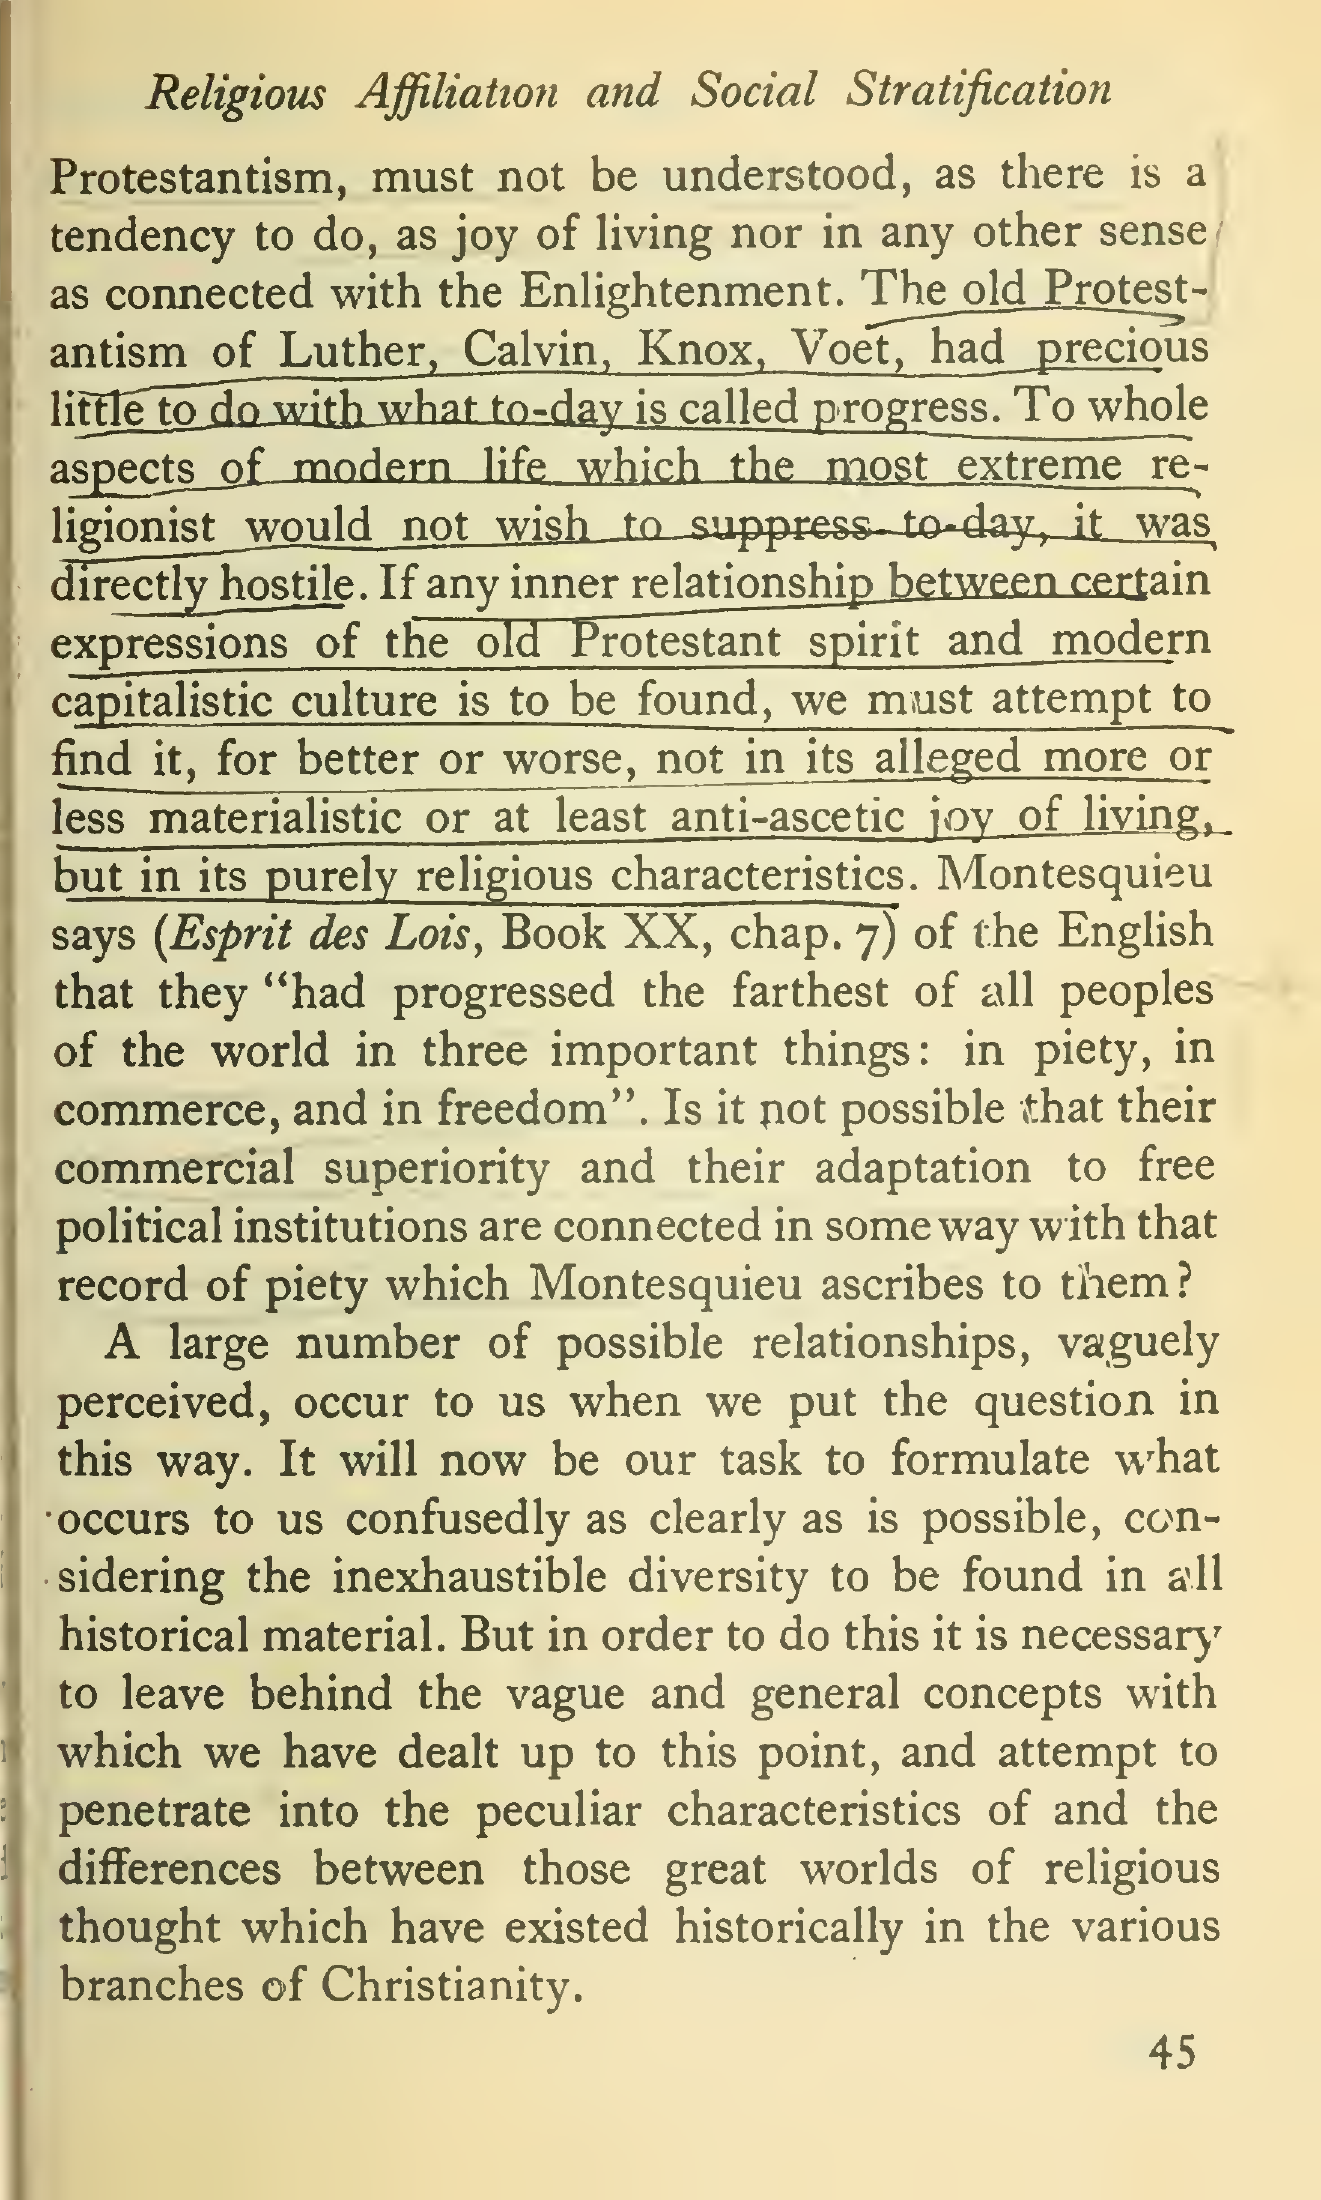 Religious Affiliation and Social Stratification
Protestantism, must not be understood, as there is a
tendency to do, as joy of living nor in any other sense
as connected with the Enlightenment. The old Protest-
antism of Luther, Calvin, Knox, Voet, had precious
little to do with what to-day is called progress. To whole
aspects of modern life which the most extreme re-
ligionist would not wish to suppress to-day, it was
directly hostile. If any inner relationship between certain
expressions of the old Protestant spirit and modern
capitalistic culture is to be found, we must attempt to
find it, for better or worse, not in its alleged more or
less materialistic or at least anti-ascetic joy of living,
but in its purely religious characteristics. Montesquieu
says (Esprit des Lois, Book XX, chap. 7) of the English
that they "had progressed the farthest of all peoples
of the world in three important things: in piety, in
commerce, and in freedom". Is it not possible that their
commercial superiority and their adaptation to free
political institutions are connected in some way with that
record of piety which Montesquieu ascribes to them?
A large number of possible relationships, vaguely
perceived, occur to us when we put the question in
this way. It will now be our task to formulate what
occurs to us confusedly as clearly as is possible, con-
sidering the inexhaustible diversity to be found in all
historical material. But in order to do this it is necessary
to leave behind the vague and general concepts with
which we have dealt up to this point, and attempt to
penetrate into the peculiar characteristics of and the
differences between those great worlds of religious
thought which have existed historically in the various
branches of Christianity.
45